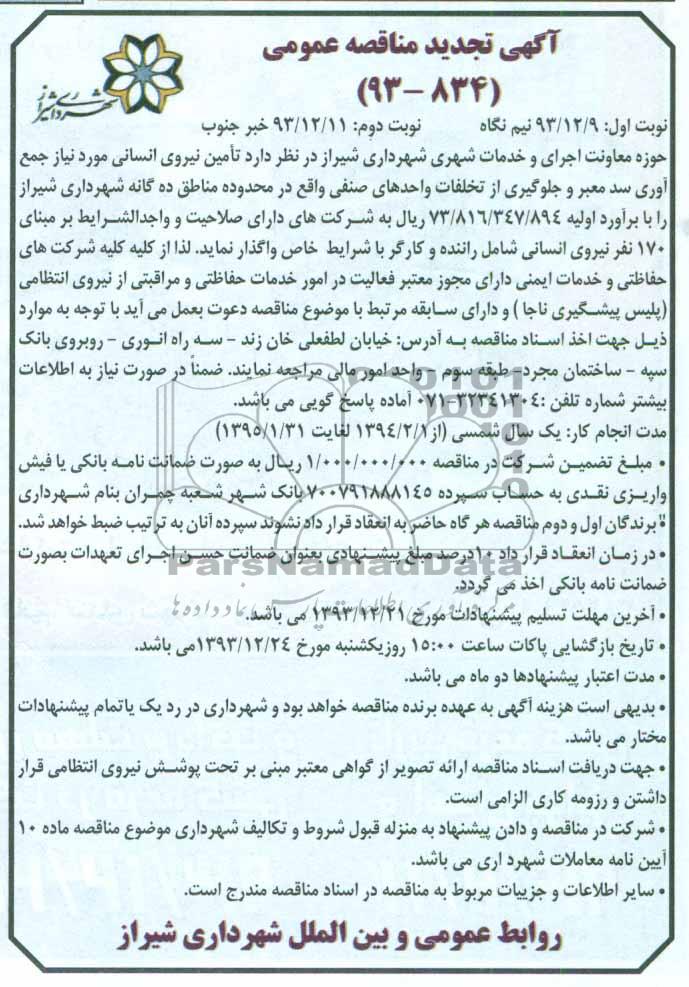 آگهی تجدید مناقصه عمومی
(۸۳۴ – ۹۳)
شهرداری شیراز
نوبت اول: ۹۳/۱۲/۹ نیم نگاه نوبت دوم: ۹۳/۱۲/۱۱ خبر جنوب
حوزه معاونت اجرای و خدمات شهری شهرداری شیراز در نظر دارد تأمین نیروی انسانی مورد نیاز جمع
آوری سد معبر و جلوگیری از تخلفات واحدهای صنفی واقع در محدوده مناطق ده گانه شهرداری شیراز
را با برآورد اولیه ۷۳/۸۱۶/۳۴۷/۸۹۴ ریال به شرکت های دارای صلاحیت و واجدالشرایط بر مبنای
۱۷۰ نفر نیروی انسانی شامل راننده و کارگر با شرایط خاص واگذار نماید. لذا از کلیه کلیه شرکت های
حفاظتی و خدمات ایمنی دارای مجوز معتبر فعالیت در امور خدمات حفاظتی و مراقبتی از نیروی انتظامی
(پلیس پیشگیری ناجا ) و دارای سابقه مرتبط با موضوع مناقصه دعوت بعمل می آید با توجه به موارد
ذیل جهت اخذ اسناد مناقصه به آدرس: خیابان لطفعلی خان زند – سه راه انوری – روبروی بانک
سپه – ساختمان مجرد- طبقه سوم – واحد امور مالی مراجعه نمایند. ضمناً در صورت نیاز به اطلاعات
بیشتر شماره تلفن :۳۲۳۴۱۳۰۴-۰۷۱ آماده پاسخ گویی می باشد.
مدت انجام کار: یک سال شمسی (از۱۳۹۴/۲/۱ لغایت ۱۳۹۵/۱/۳۱)
• مبلغ تضمین شرکت در مناقصه ۱/۰۰۰/۰۰۰/۰۰۰ ریال به صورت ضمانت نامه بانکی یا فیش
واریزی نقدی به حساب سپرده ۷۰۰۷۹۱۸۸۸۱۴۵ بانک شهر شعبه چمران بنام شهرداری
• برندگان اول و دوم مناقصه هر گاه حاضر به انعقاد قرار داد نشوند سپرده آنان به ترتیب ضبط خواهد شد.
• در زمان انعقاد قرار داد ۱۰درصد مبلغ پیشنهادی بعنوان ضمانت حسن اجرای تعهدات بصورت
ضمانت نامه بانکی اخذ می گردد.
ParsNamadData
• آخرین مهلت تسلیم پیشنهادات مورخ ۱۳۹۳/۱۲/۲۱ می باشد.
• تاریخ بازگشایی پاکات ساعت ۱۵:۰۰ روزیکشنبه مورخ ۱۳۹۳/۱۲/۲۴می باشد.
• مدت اعتبار پیشنهادها دو ماه می باشد.
• بدیهی است هزینه آگهی به عهده برنده مناقصه خواهد بود و شهرداری در رد یک یاتمام پیشنهادات
مختار می باشد.
• جهت دریافت اسناد مناقصه ارائه تصویر از گواهی معتبر مبنی بر تحت پوشش نیروی انتظامی قرار
داشتن و رزومه کاری الزامی است.
• شرکت در مناقصه و دادن پیشنهاد به منزله قبول شروط و تکالیف شهرداری موضوع مناقصه ماده ۱۰
آیین نامه معاملات شهرد اری می باشد.
• سایر اطلاعات و جزییات مربوط به مناقصه در اسناد مناقصه مندرج است.
روابط عمومی و بین الملل شهرداری شیراز